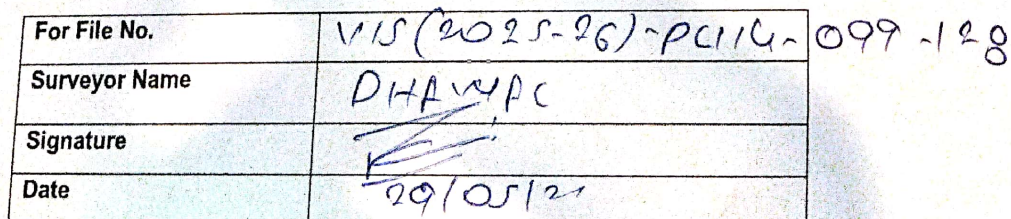 For File No. VIS(2025-26)-PC114-099-128
Surveyor Name
Signature
Date 29/05/2